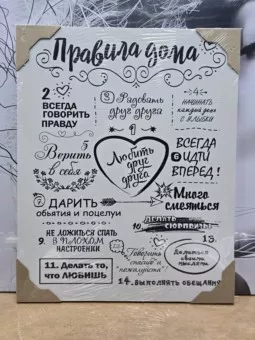 Правила дома
2
ВСЕГДА
ГОВОРИТЬ
ПРАВДУ
3 Радовать
друг друга
4
НАЧИНАТЬ
каждый день
с улыбки
1
Любить
друг
друга
5
Верить
в себя
ВСЕГДА
6 ИДТИ
ВПЕРЕД!
7 ДАРИТЬ
объятия и поцелуи
8 Много
смеяться
9. НЕ ЛОЖИТЬСЯ СПАТЬ
В ПЛОХОМ
НАСТРОЕНИИ
10. ДЕЛАТЬ
СЮРПРИЗЫ
11. Делать то,
что ЛЮБИШЬ
Говорить
спасибо и
пожалуйста
13.
Делиться
своими
мыслями
14. ВЫПОЛНЯТЬ ОБЕЩАНИЯ